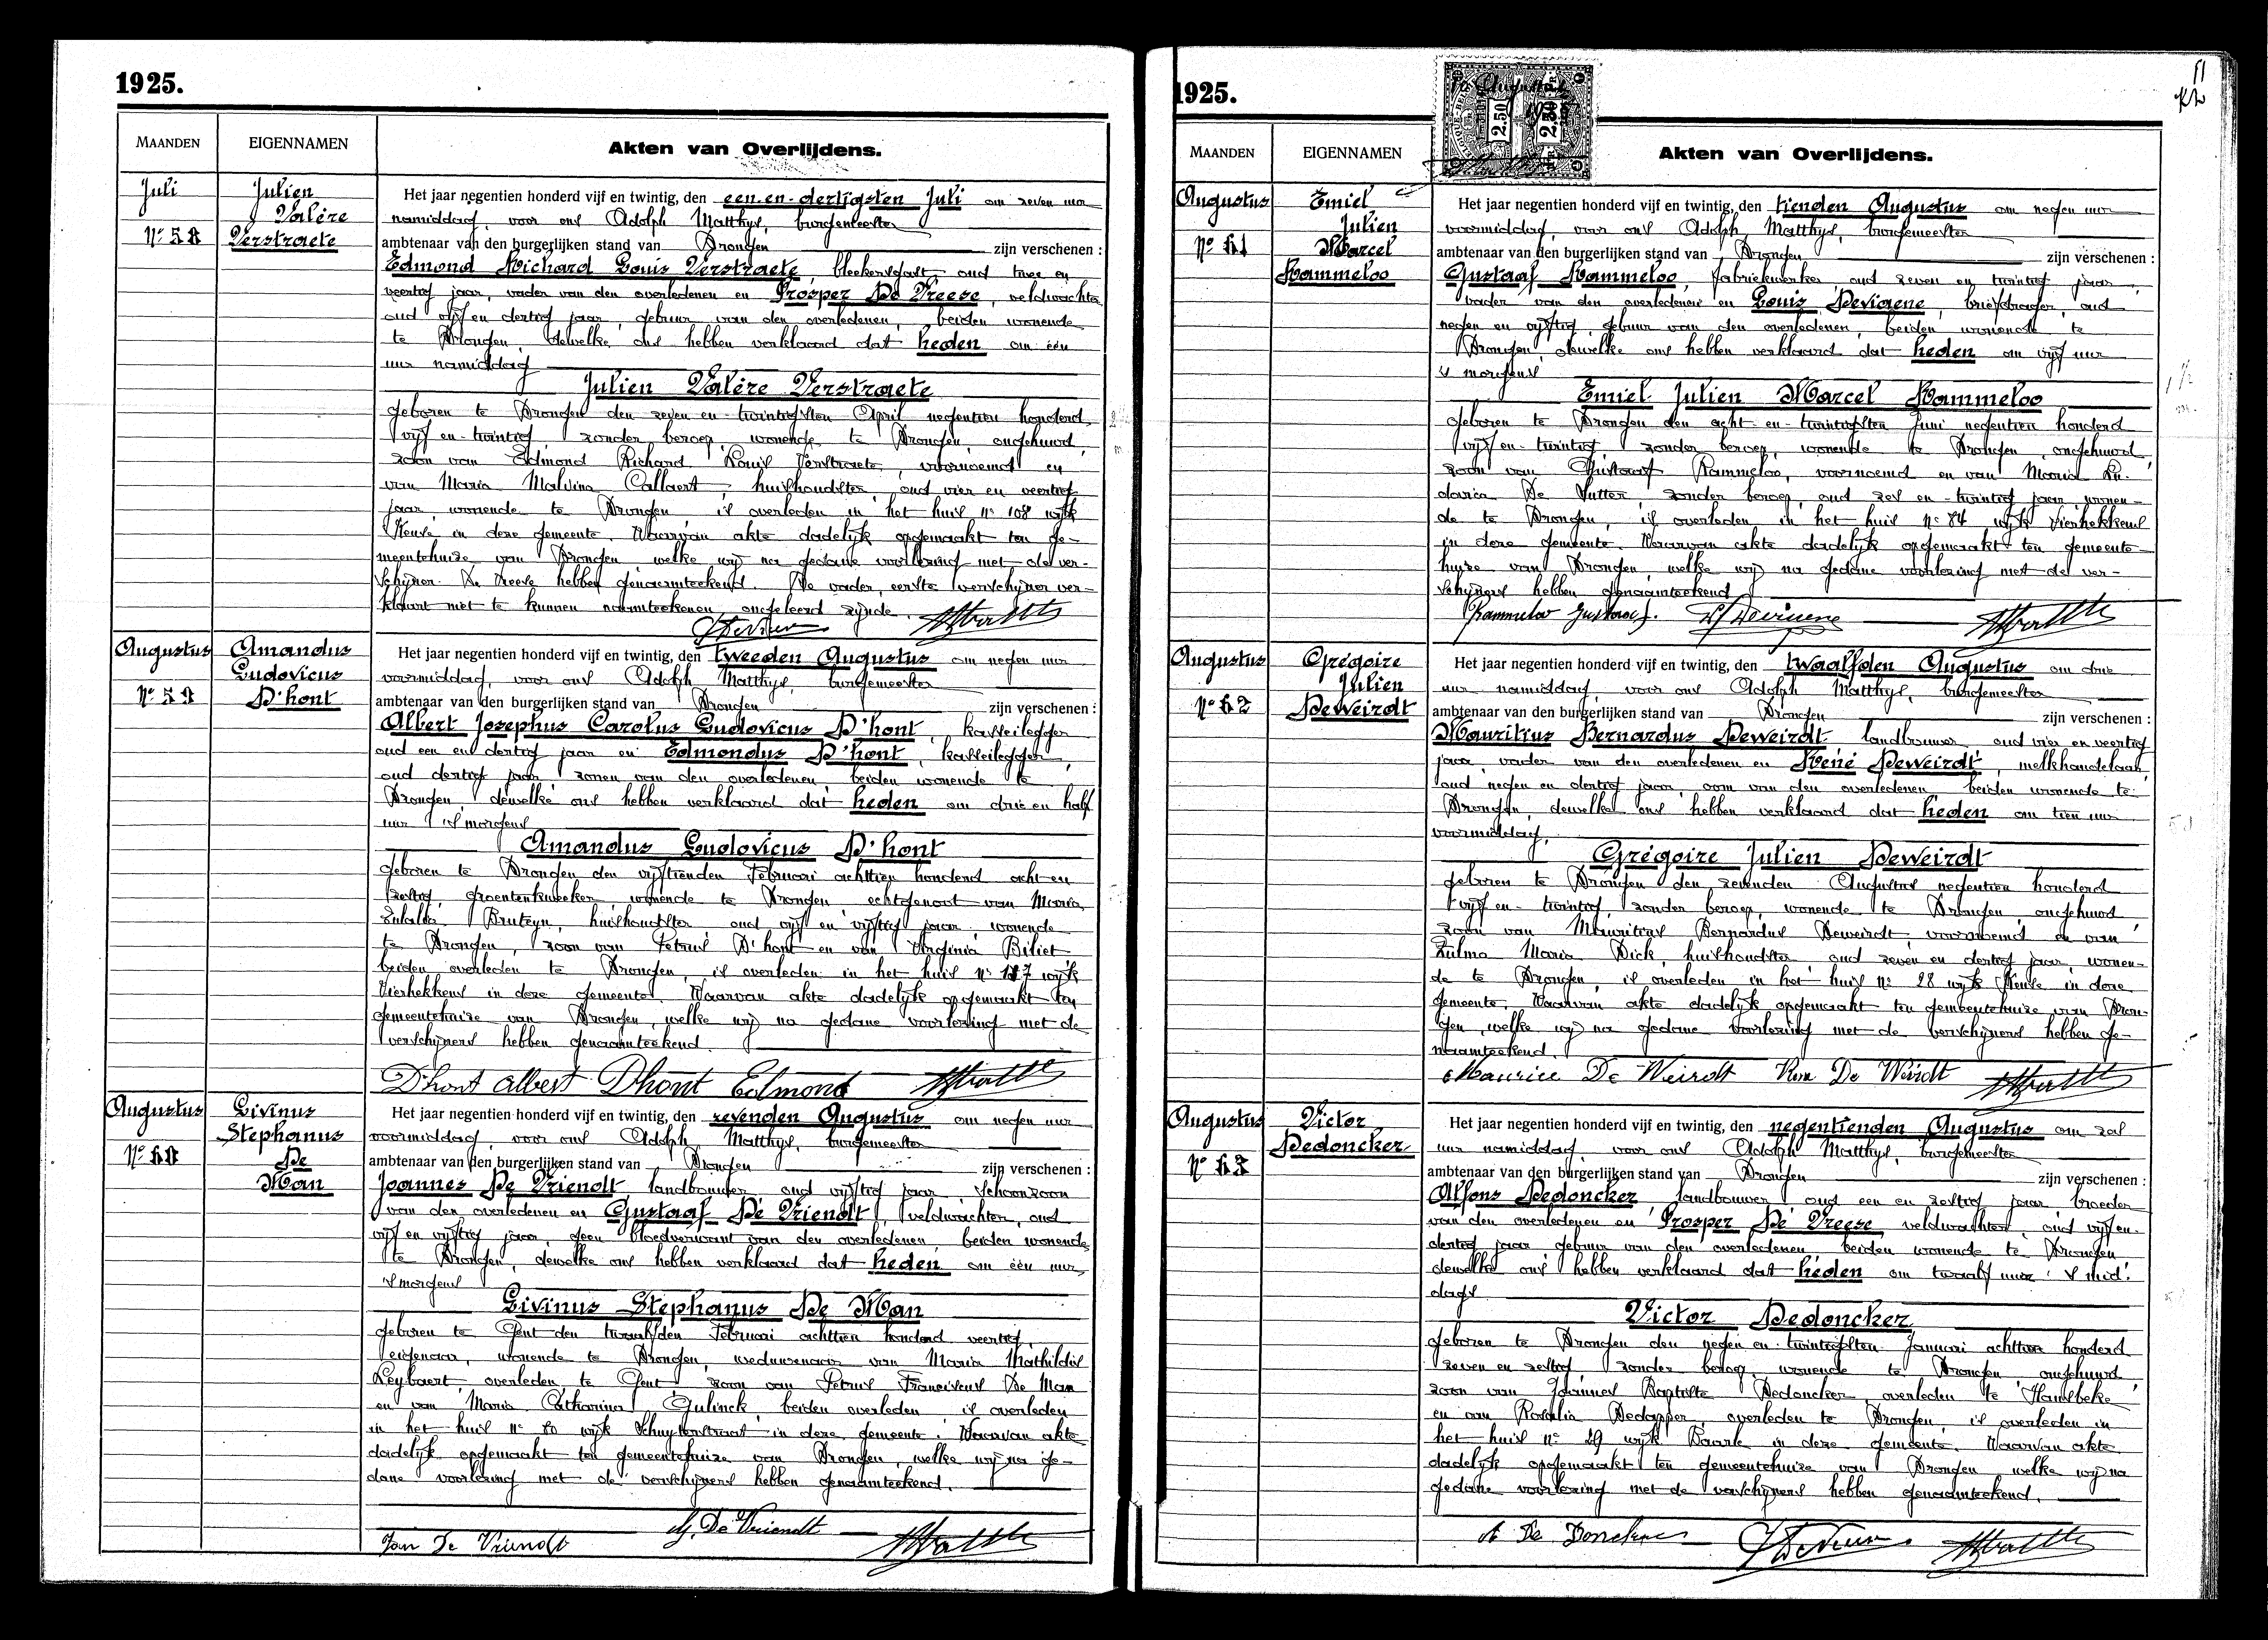 1925.
MAANDEN
EIGENNAMEN
Akten van Overlijdens.
Juli
Nº 58
Julien
Valère
Verstraete
Het jaar negentien honderd vijf en twintig, den een-en-dertigsten Juli om zeven uur
namiddag, voor ons Adolph Matthys, burgemeester
ambtenaar van den burgerlijken stand van Drongen zijn verschenen :
Edmond Richard Louis Verstraete, bleekersgast, oud twee en
veertig jaar, vader van den overledenen en Prosper De Vreese, veldwachter
oud vijf en dertig jaar, gebuur van den overledenen, beiden wonende
te Drongen, dewelke ons hebben verklaard dat heden om één
uur namiddag
Julien Valère Verstraete
geboren te Drongen den zeven en-twintigsten April negentien honderd
vijf en-twintig, zonder beroep, wonende te Drongen, ongehuwd,
zoon van Edmond Richard Louis Verstraete, voornoemd en
van Maria Malvina Callaert, huishoudster, oud vier en veertig
jaar, wonende te Drongen is overleden in het huis nº 108 wijk
Keuze in deze gemeente. Waarvan akte dadelijk opgemaakt ten ge-
meentehuize van Drongen welke wij na gedane voorlezing met de ver-
schijner De Vreese hebben genaamteekend. De vader, eerste verschijner ver-
klaart niet te kunnen naamteekenen, ongeleerd zijnde
Augustus
Nº 59
Amandus
Ludovicus
D'hont
Het jaar negentien honderd vijf en twintig, den tweeden Augustus om negen uur
voormiddag, voor ons Adolph Matthys, burgemeester
ambtenaar van den burgerlijken stand van Drongen zijn verschenen :
Albert Josephus Carolus Ludovicus D'hont, kasseilegger
oud een en dertig jaar en Edmondus D'hont, kasseilegger,
oud dertig jaar zonen van den overledenen, beiden wonende te
Drongen, dewelke ons hebben verklaard dat heden om drie en half
uur 's morgens
Amandus Ludovicus D'hont
geboren te Drongen den vijftienden Februari achttien honderd acht en
zestig, groentenkweeker, wonende te Drongen echtgenoot van Maria
Eulalia Bruteyn, huishoudster oud vijf en vijftig jaar, wonende
te Drongen, zoon van Petrus D'hont en van Virginia Biliet
beiden overleden te Drongen, is overleden in het huis nº 127 wijk
Vierhekkens in deze gemeente. Waarvan akte dadelijk opgemaakt ten
gemeentehuize van Drongen, welke wij na gedane voorlezing met de
verschijners hebben genaamteekend
D'hont Albert Dhont Edmond
Augustus
Nº 60
Livinus
Stephanus
De
Man
Het jaar negentien honderd vijf en twintig, den zevenden Augustus om negen uur
voormiddag, voor ons Adolph Matthys, burgemeester
ambtenaar van den burgerlijken stand van Drongen zijn verschenen :
Joannes De Vriendt landbouwer, oud vijftig jaar, schoonzoon
van den overledenen en Gustaaf De Vriendt, veldwachter, oud
vijf en vijftig jaar, geen bloedverwant van den overledenen, beiden wonende
te Drongen, dewelke ons hebben verklaard dat heden om één uur
's morgens
Livinus Stephanus De Man
geboren te Gent den twaalfden Februari achttien honderd veertig,
eigenaar, wonende te Drongen, weduwenaar van Maria Mathildis
Leybaert, overleden te Gent zoon van Petrus Franciscus De Man
en van Maria Catharina Gulinck beiden overleden is overleden
in het huis nº 80 wijk Schuyterstraat in deze gemeente. Waarvan akte
dadelijk opgemaakt ten gemeentehuize van Drongen, welke wij na ge-
dane voorlezing met de verschijners hebben genaamteekend.
Jan De Vriendt G. De Vriendt
1925.
MAANDEN
EIGENNAMEN
Akten van Overlijdens.
2.50 2.50
Augustus
Nº 61
Emiel
Julien
Marcel
Rammeloo
Het jaar negentien honderd vijf en twintig, den tienden Augustus om negen uur
voormiddag, voor ons Adolph Matthys, burgemeester
ambtenaar van den burgerlijken stand van Drongen zijn verschenen :
Gustaaf Rammeloo, fabriekwerker, oud zeven en twintig jaar,
vader van den overledenen en Louis Deviaene, briefdrager, oud
negen en vijftig, gebuur van den overledenen, beiden wonende te
Drongen, dewelke ons hebben verklaard dat heden om vijf uur
's morgens
Emiel Julien Marcel Rammeloo
geboren te Drongen den acht-en-twintigsten Juni negentien honderd
vijf en-twintig, zonder beroep, wonende te Drongen, ongehuwd,
zoon van Gustaaf Rammeloo, voornoemd en van Maria Lu-
dovica De Sutter, zonder beroep, oud zes en-twintig jaar, wonen-
de te Drongen, is overleden in het huis nº 84 wijk Vierhekkens
in deze gemeente. Waarvan akte dadelijk opgemaakt ten gemeente-
huize van Drongen, welke wij na gedane voorlezing met de ver-
schijners hebben genaamteekend
Rammeloo Gustaaf. Deviaene
Augustus
Nº 62
Grégoire
Julien
Deweirdt
Het jaar negentien honderd vijf en twintig, den twaalfden Augustus om drie
uur namiddag, voor ons Adolph Matthys, burgemeester
ambtenaar van den burgerlijken stand van Drongen zijn verschenen :
Mauritius Bernardus Deweirdt landbouwer, oud vier en veertig
jaar, vader van den overledenen en René Deweirdt, melkhandelaar,
oud negen en dertig jaar, oom van den overledenen, beiden wonende te
Drongen, dewelke ons hebben verklaard dat heden om tien uur
voormiddag,
Grégoire Julien Deweirdt
geboren te Drongen den zevenden Augustus negentien honderd
vijf en-twintig, zonder beroep, wonende te Drongen, ongehuwd,
zoon van Mauritius Bernardus Deweirdt, voornoemd en van
Zulma Maria Dick, huishoudster, oud zeven en dertig jaar, wonen-
de te Drongen, is overleden in het huis nº 28 wijk Keuze in deze
gemeente. Waarvan akte dadelijk opgemaakt ten gemeentehuize van Dron-
gen, welke wij na gedane voorlezing met de verschijners hebben ge-
naamteekend.
Maurice De Weirdt De Weirdt
Augustus
Nº 63
Victor
Dedoncker
Het jaar negentien honderd vijf en twintig, den negentienden Augustus om zes
uur namiddag, voor ons Adolph Matthys, burgemeester
ambtenaar van den burgerlijken stand van Drongen zijn verschenen :
Alfons Dedoncker, landbouwer, oud een en zestig jaar, broeder
van den overledenen en Prosper De Vreese, veldwachter, oud vijf en
dertig jaar gebuur van den overledenen beiden wonende te Drongen,
dewelke ons hebben verklaard dat heden om twaalf uur 's mid-
dags
Victor Dedoncker
geboren te Drongen den negen en-twintigsten Januari achttien honderd
zeven en zestig zonder beroep, wonende te Drongen ongehuwd,
zoon van Joannes Baptiste Dedoncker, overleden te Hansbeke
en van Rosalia Dedapper, overleden te Drongen, is overleden in
het huis nº 29 wijk Baarle in deze gemeente. Waarvan akte
dadelijk opgemaakt ten gemeentehuize van Drongen, welke wij na
gedane voorlezing met de verschijners hebben genaamteekend.
A De Doncker